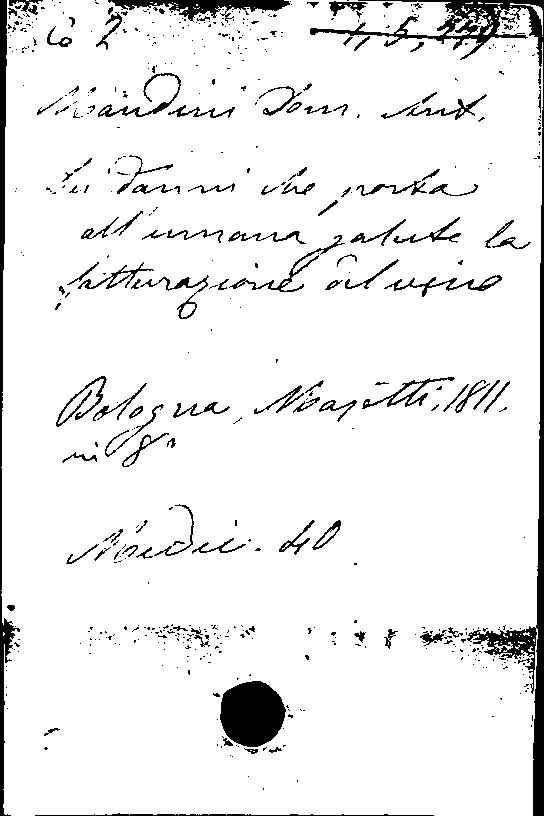 Co 2 1, 5, 279
Mandini Dom. Ant.
Sui danni che porta
all'umana salute la
fatturazione del vino
Bologna, Masetti, 1811.
in 8°
Medic. 40